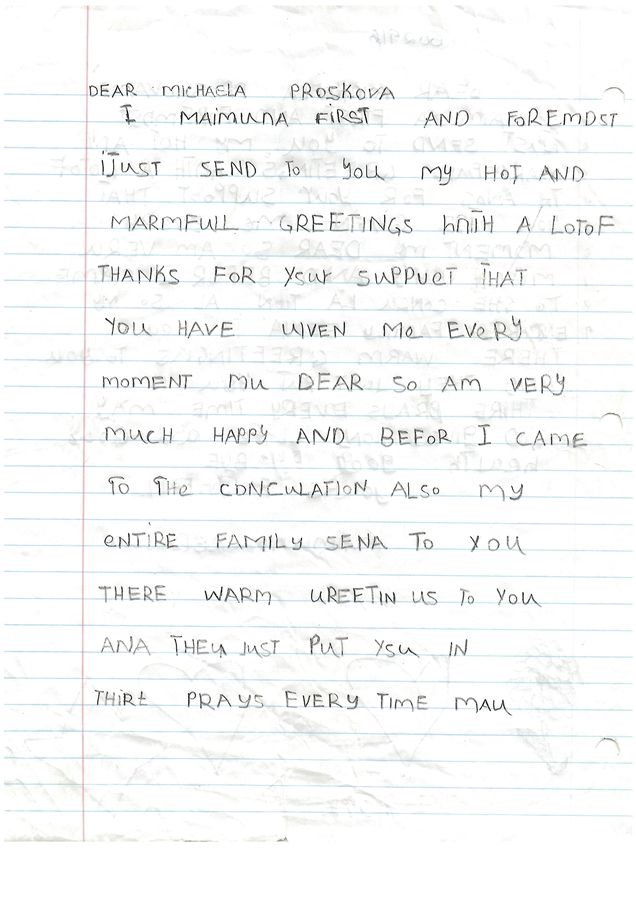 DEAR MICHAELA PROSKOVA
I MAIMUNA FIRST AND FOREMOST
iJUST SEND To YOU MY HOT AND
MARMFULL GREETINGS hNITH A LOTOF
THANKS FOR YSUr SUPPUET THAT
YOU HAVE UIVEN Me EVERY
MOMENT MU DEAR SO AM VERY
MUCH HAPPY AND BEFOR I CAME
TO THe CONCULATION ALSO MY
eNTIRE FAMILY SENA TO YOU
THERE WARM UREETIN US To YOU
ANA THEY JUST PUT YSU IN
THIRE PRAYS EVERY TIME MAU